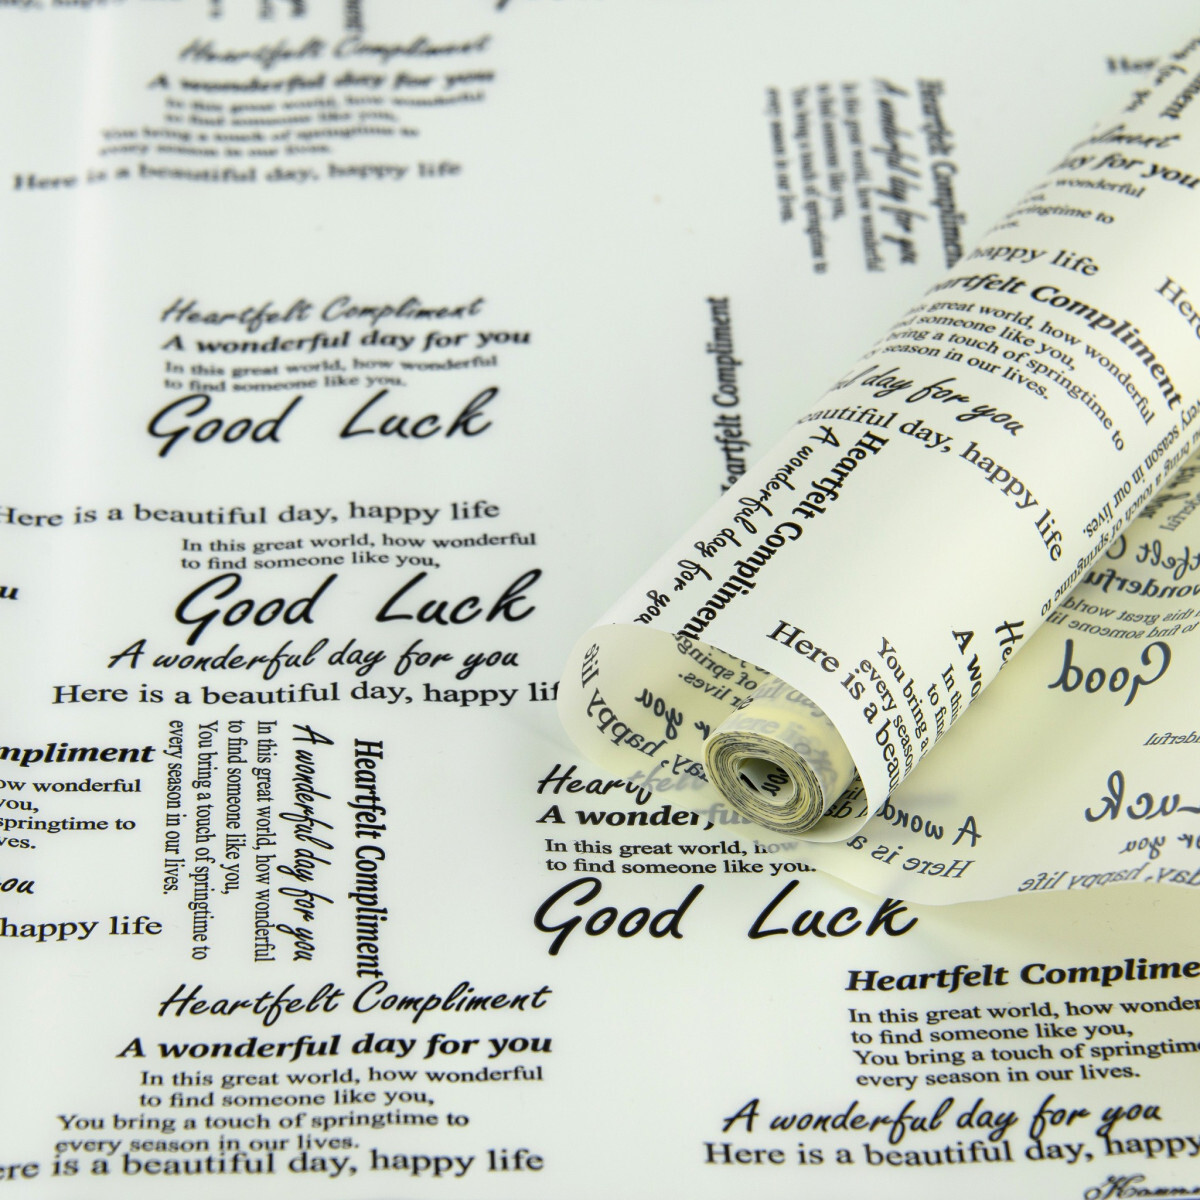 Heartfelt Compliment
A wonderful day for you
In this great world, how wonderful
to find someone like you,
You bring a touch of springtime to
every season in our lives.
Here is a beautiful day, happy life
Heartfelt Compliment
A wonderful day for you
In this great world, how wonderful
to find someone like you,
You bring a touch of springtime to
every season in our lives.
Heartfelt Compliment
Heartfelt Compliment
A wonderful day for you
In this great world, how wonderful
to find someone like you,
Good Luck
Here is a beautiful day, happy life
In this great world, how wonderful
to find someone like you,
Good Luck
A wonderful day for you
Here is a beautiful day, happy lif
mpliment
ow wonderful
you,
springtime to
ves.
ou
happy life
Heartfelt Compliment
A wonderful day for you
In this great world, how wonderful
to find someone like you,
You bring a touch of springtime to
every season in our lives.
Heartfelt Compliment
A wonderful day for you
In this great world, how wonderful
to find someone like you,
You bring a touch of springtime to
every season in our lives.
ere is a beautiful day, happy life
day for you
wonderful
springtime to
happy life
artfelt Compliment
this great world, how wonderful
someone like you,
bring a touch of springtime to
season in our lives.
day for you
beautiful day, happy life
Heartfelt Compliment
A wonderful day for you
Here is a beau
You bring a
every season
to find
In this
A wo
He
Heartfelt
A wonderful
In this great world, how
to find someone like you.
Good Luck
Good
Luck
A wond
Here is a
day, happy life
Heartfelt Complime
In this great world, how wonder
to find someone like you,
You bring a touch of springtime
every season in our lives.
A wonderful day for you
Here is a beautiful day, happy